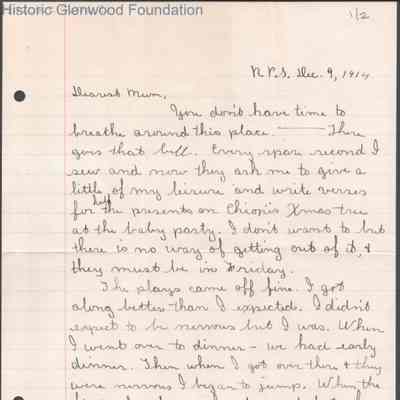 Historic Glenwood Foundation
1/2
N.P.S. Dec. 9, 1914
Dearest Mum,
You don't have time to
breathe around this place. — There
goes that bell. Every spare second I
sew and now they ask me to give a
little of my leisure and write verses
for half the presents on Chiopi's Xmas tree
at the baby party. I don't want to but
there is no way of getting out of it, &
they must be in Friday.
The plays came off fine. I got
along better than I expected. I didn't
expect to be nervous but I was. When
I went over to dinner – we had early
dinner. Then when I got over there & they
were nervous I began to jump. When the